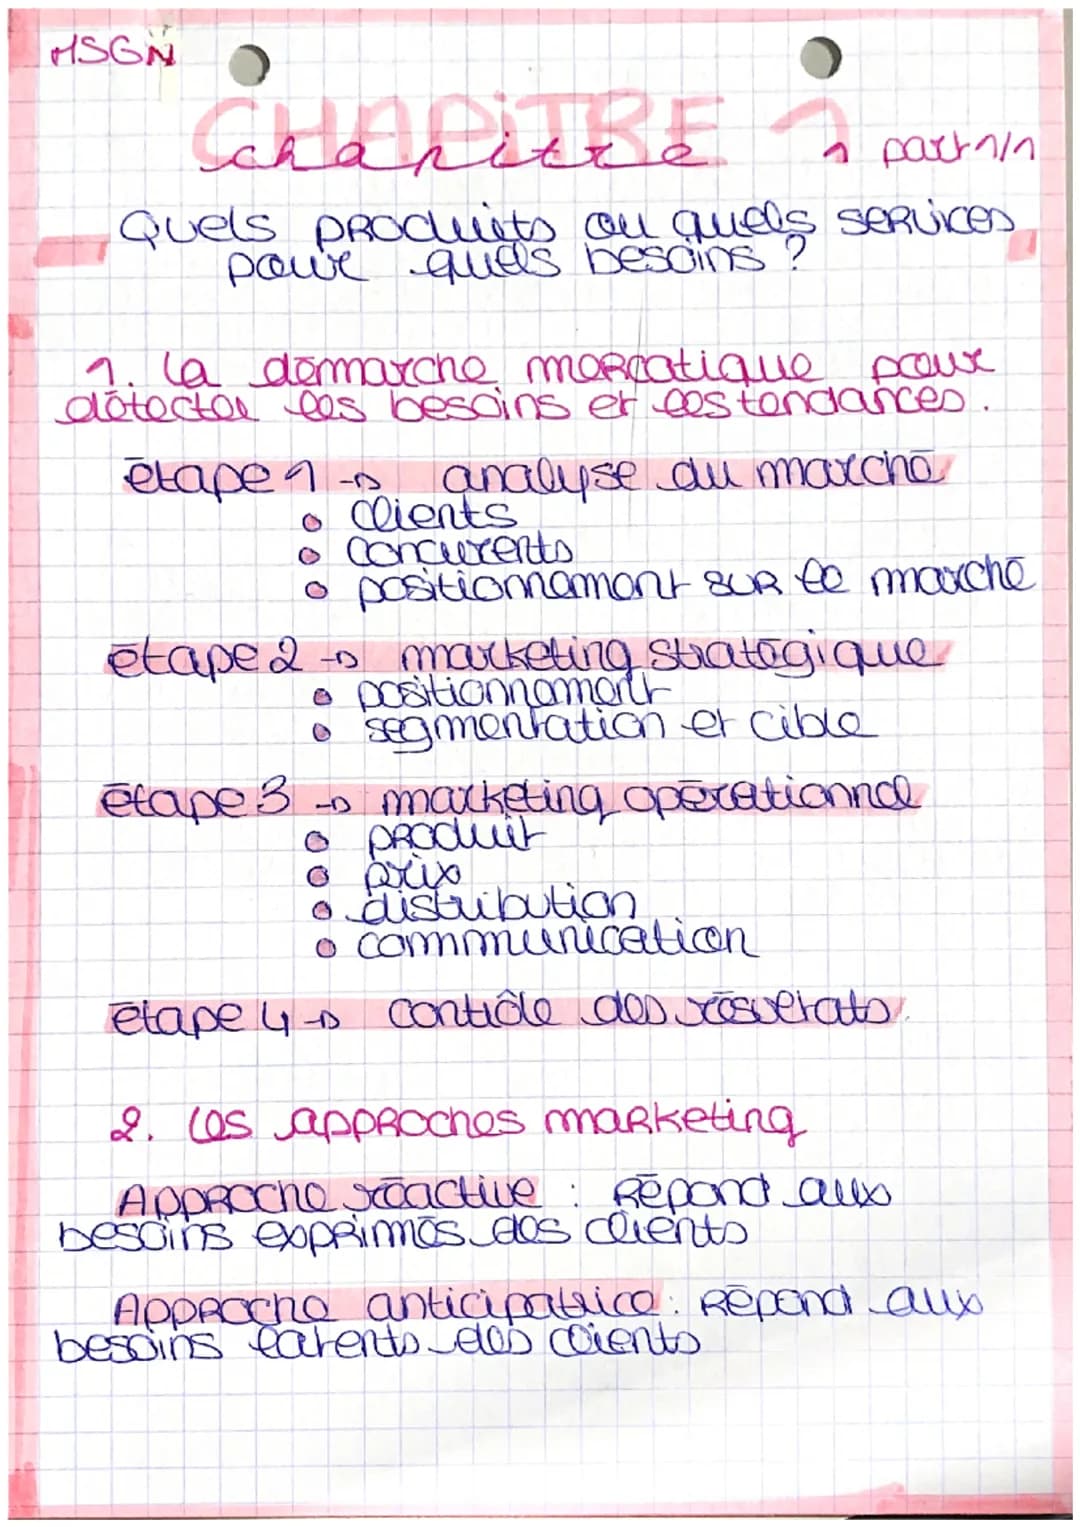 MSGN
CHAPiTRE 1
chapitre 1 part 1/1
Quels produits ou quels services
pour quels besoins ?
1. la démarche mercatique pour
détecter les besoins et les tendances.
étape 1 → analyse du marché
• clients
• concurents
• positionnement sur le marché
étape 2 → marketing stratégique
• positionnement
• segmentation et cible
étape 3 → marketing opérationnel
• produit
• prix
• distribution
• communication
étape 4 → contrôle des résultats.
2. les approches marketing
Approche réactive : Répond aux
besoins exprimés des clients
Approche anticipatrice : Répond aux
besoins latents des clients